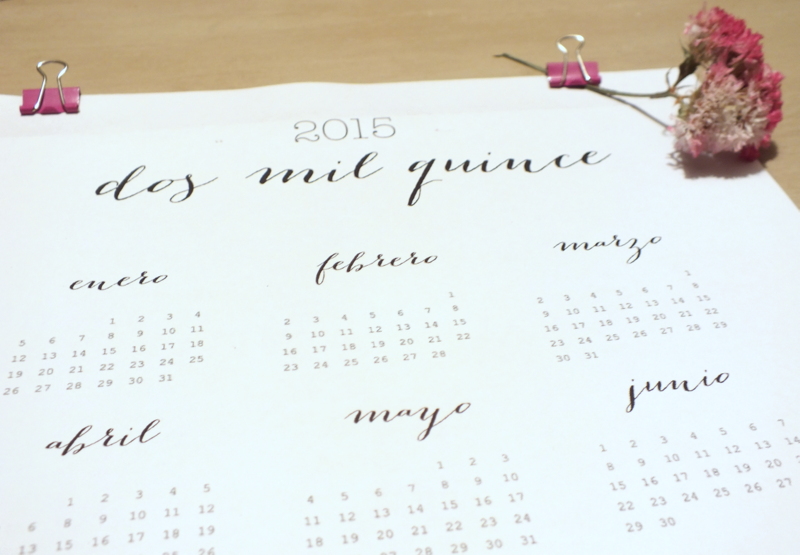 2015
dos mil quince
enero
1 2 3 4
5 6 7 8 9 10 11
12 13 14 15 16 17 18
19 20 21 22 23 24 25
26 27 28 29 30 31
febrero
1
2 3 4 5 6 7 8
9 10 11 12 13 14 15
16 17 18 19 20 21 22
23 24 25 26 27 28
marzo
1
2 3 4 5 6 7 8
9 10 11 12 13 14 15
16 17 18 19 20 21 22
23 24 25 26 27 28 29
30 31
abril
1 2 3 4 5
6 8 9 10 11 12
13 15 16 17 18 19
26
mayo
1 2 3
4 5 6 7 8 9 10
11 12 13 14 15 16 17
18 19 20 21 22 23 24
29 30 31
junio
1 2 3 4 5 6 7
8 9 10 11 12 13 14
15 16 17 18 19 20
22 23 24 25 26 27
29 30